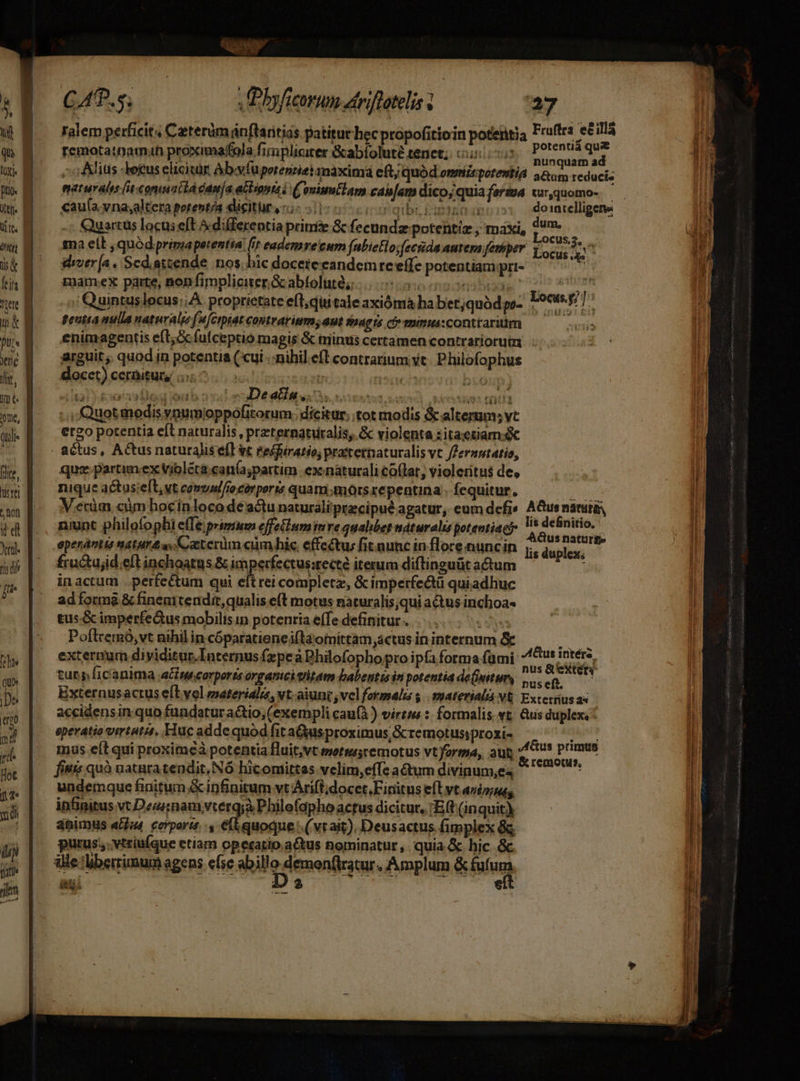 CAP. 5. Physicorum Aristotelis 27
ralem perficit. Cæterùm instantias patitur hec propositio in potentia
remota: nam in proxima sola simpliciter & absolutè tenet.
Alius locus elicitur Ab vsu potentiæ: maxima est, quòd omnis potentia
naturalis sit coniuncta causa actionis: coniunctam causam dico, quia forma
causa vna, altera potentia dicitur,
Quartus locus est A differentia primæ & secundæ potentiæ, maxi,
ma est, quòd prima potentia sit eadem re cum subiecto, secūda autem semper
diuersa. Sed attende nos hic docere eandem re esse potentiam pri-
mam ex parte, non simpliciter & absolutè,
Quintus locus: A proprietate est, qui tale axióma habet, quòd po-
tentia nulla naturalis suscipiat contrarium, aut magis & minus: contrarium
enim agentis est, & susceptio magis & minus certamen contrariorum
arguit, quod in potentia (cui nihil est contrarium vt Philosophus
docet) cernitur,
De actu
Quot modis vnum oppositorum dicitur, tot modis & alterum; vt
ergo potentia est naturalis, præternaturalis, & violenta: ita etiam &
actus, Actus naturalis est vt respiratio, præternaturalis vt fermentatio,
quæ partim ex violēta causa, partim ex naturali cōstat, violentus de,
nique actus est, vt conuulsio corporis quam mors repentina sequitur.
Verùm cùm hoc in loco de actu naturali præcipuè agatur, eum defi-
niunt philosophi esse primum effectum in re qualibet naturalis potentiæ &
operantis naturæ. Cæterùm cùm hic effectus fit nunc in flore nunc in
fructu, id est inchoatus & imperfectus: rectè iterum distinguūt actum
in actum perfectum qui est rei completæ, & imperfectū qui adhuc
ad formā & finem tendit, qualis est motus naturalis, qui actus inchoa-
tus & imperfectus mobilis in potentia esse definitur.
Postremò, vt nihil in cōparatione ista omittam, actus in internum &
externum diuiditur. Internus sæpe à Philosopho pro ipsa forma sumi
tur, sic anima actus corporis organici vitam habentis in potentia definitur,
Externus actus est vel materialis, vt aiunt, vel formalis, materialis vt
accidens in quo fundatur actio, (exempli causâ) virtus: formalis vt
operatio virtutis. Huc adde quòd sit actus proximus, & remotus; proxi-
mus est qui proximè à potentia fluit, vt motus: remotus vt forma, aut
finis quò natura tendit, Nō hic omittas velim, esse actum diuinum, ea
undemque finitum & infinitum vt Arist. docet. Finitus est vt animus,
infinitus vt Deus: nam vterq; à Philosopho actus dicitur. Est (inquit)
animus actus corporis, est quoque (vt ait) Deus actus simplex &
purus, vtriusque etiam operatio actus nominatur, quia & hic &
ille liberrimum agens esse ab illo demonstratur. Amplum & fusum
D 2
est
Frustra est illa
potentiâ quæ
nunquam ad
actum reducie
tur, quomo-
do intelligen-
dum.
Locus. 3.
Locus. 4.
Locus. 5.
Actus naturæ
lis definitio.
Actus naturæ
lis duplex.
Actus intero
nus & extero
nus est.
Externus a-
ctus duplex.
Actus primus
& remotus.